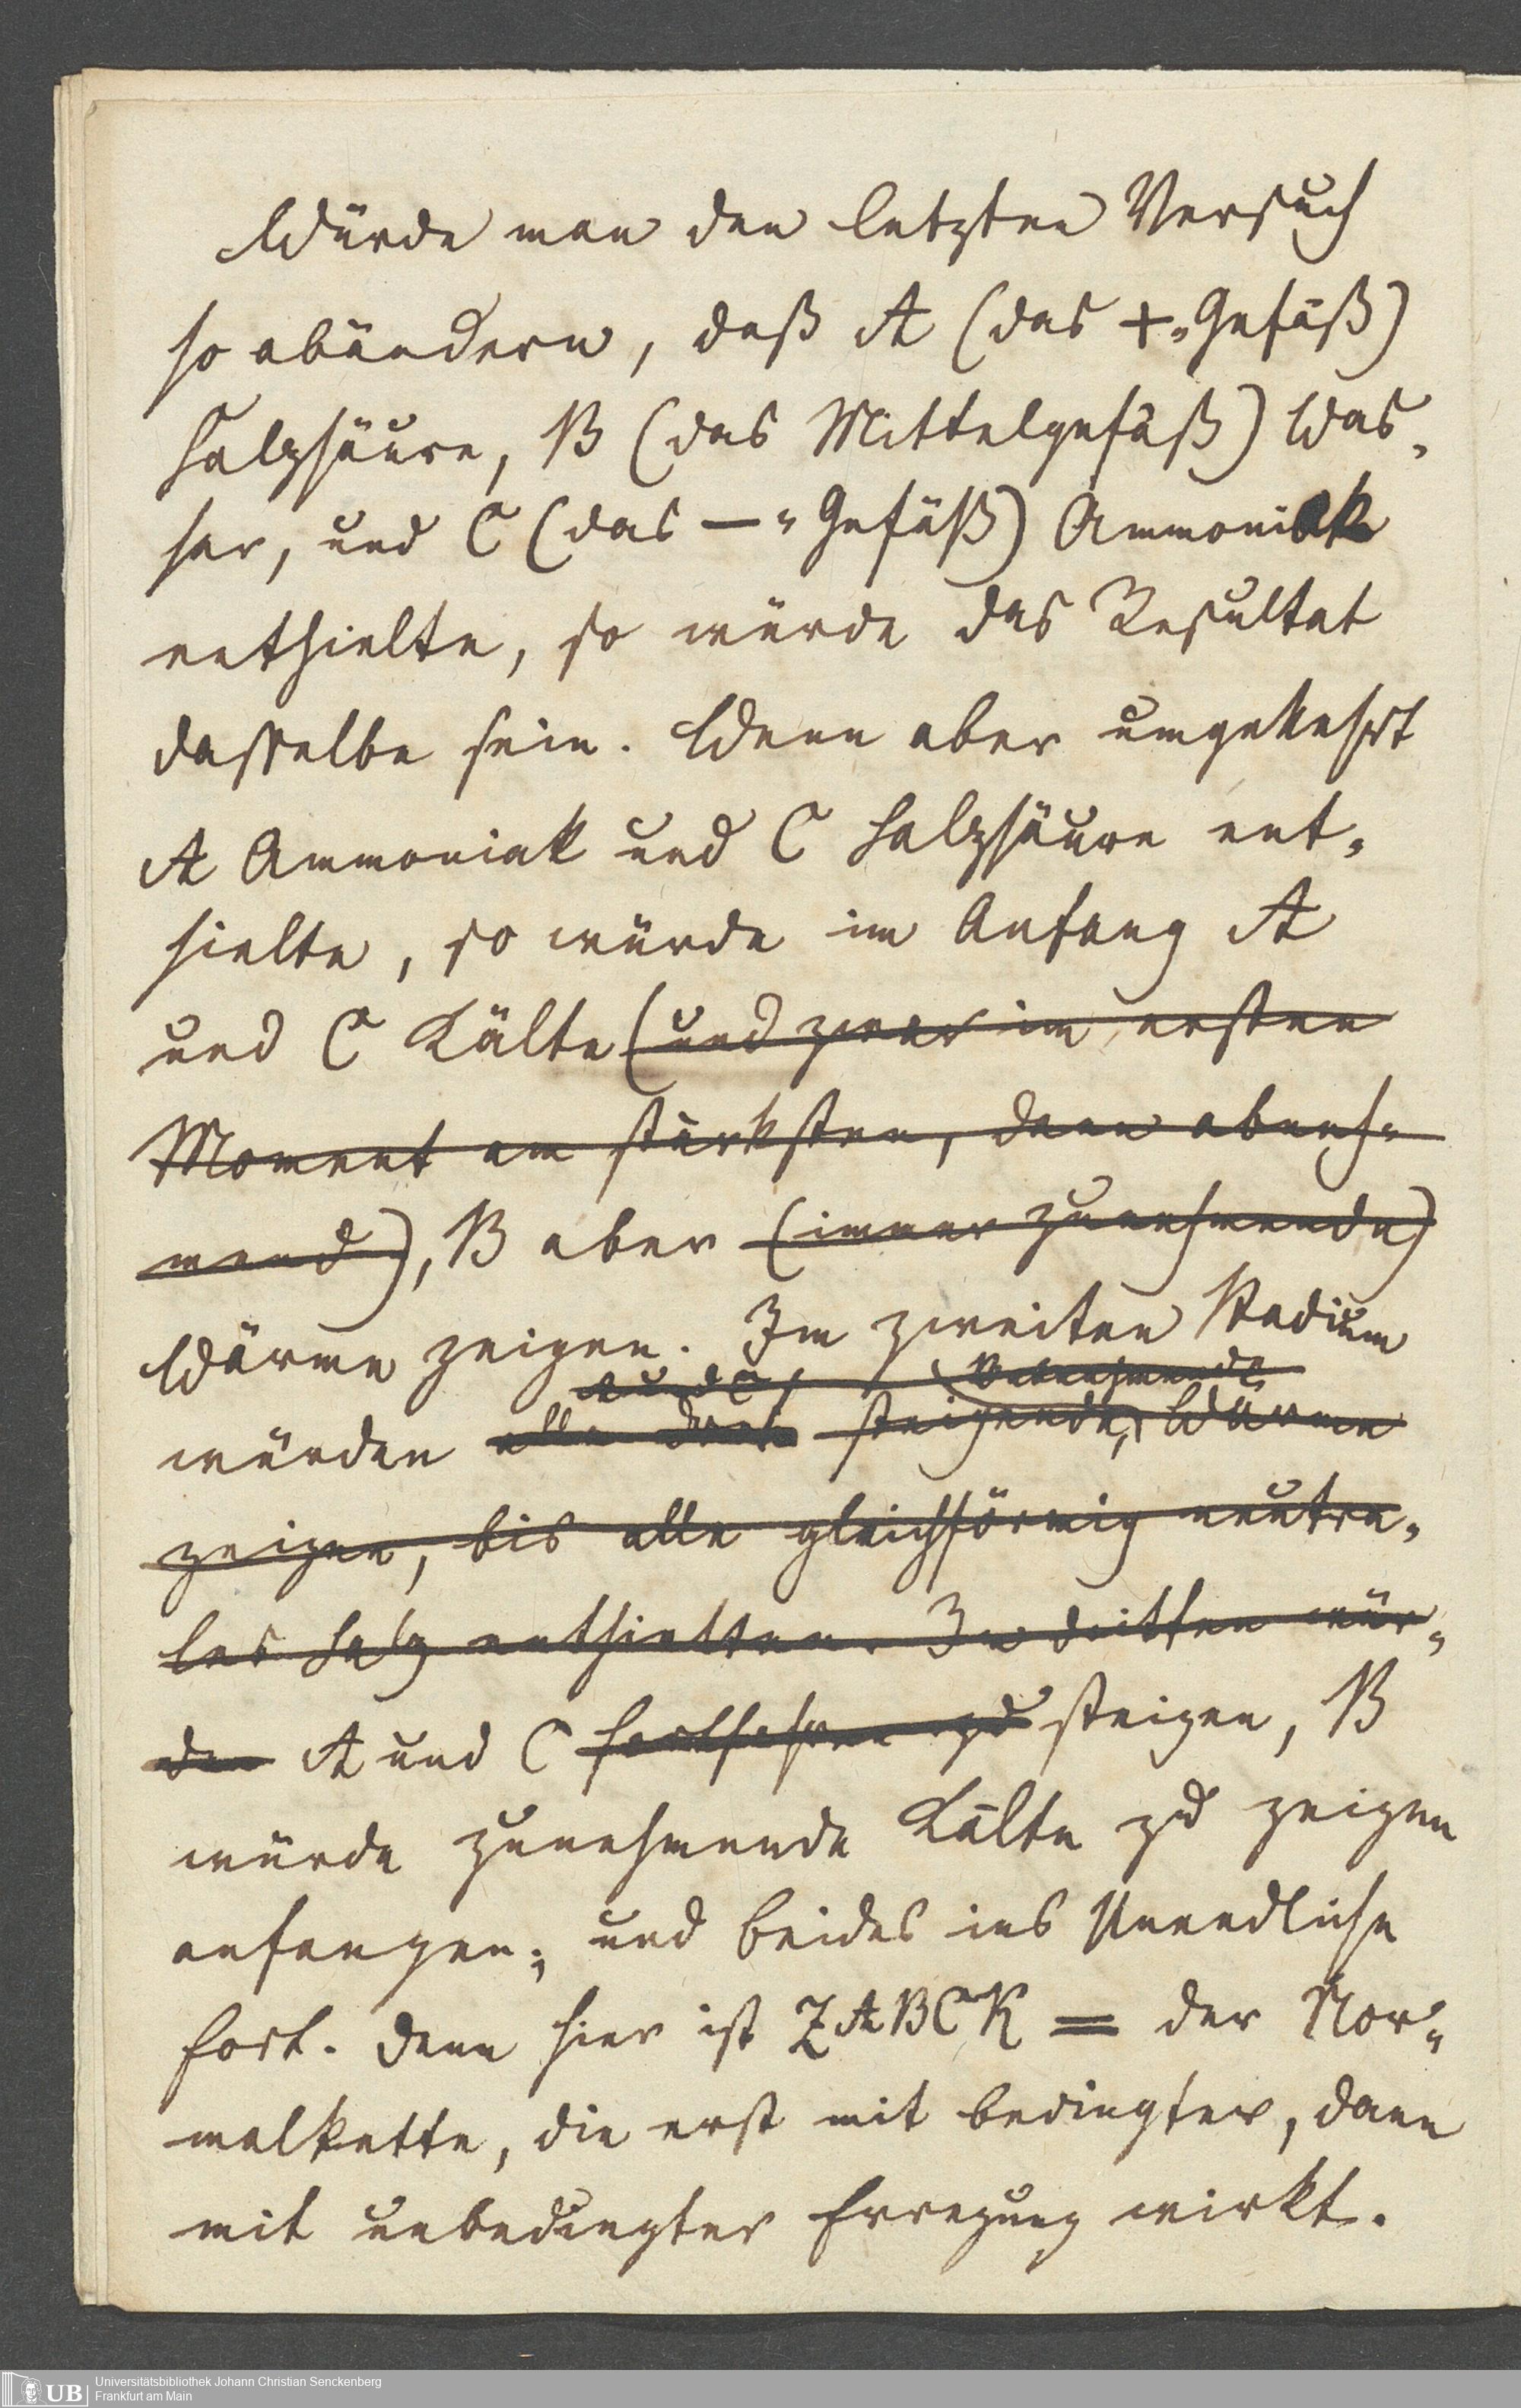 Würde man den letzten Versuch
so abändern, daß A (das +=Gefäß)
Salzsäure, B (das Mittelgefäß) Was=
ser, und C (das —=Gefäß) Ammoniak
enthielte, so würde das Resultat
dasselbe sein. Wenn aber umgekehrt
A Ammoniak und C Salzsäure ent=
hielte, so würde im Anfang A
und C Kälte (und zwar im ersten
Moment am stärksten, dann abneh=
mend), B aber (immer zunehmende)
Wärme zeigen. Im zweiten Stadium
und C
würden alle drei steigende, Wärme
zeigen, bis alle gleichförmig neutra=
les Salz enthielten. Im dritten wür=
den A und C fortfahren zu steigen, B
würde zunehmende Kälte zu zeigen
anfangen; und beides ins Unendliche
fort. Denn hier ist ZABCK = der Nor=
malkette, die erst mit bedingter, dann
mit unbedingter Erregung wirkt.
UB
Universitätsbibliothek Johann Christian Senckenberg
Frankfurt am Main